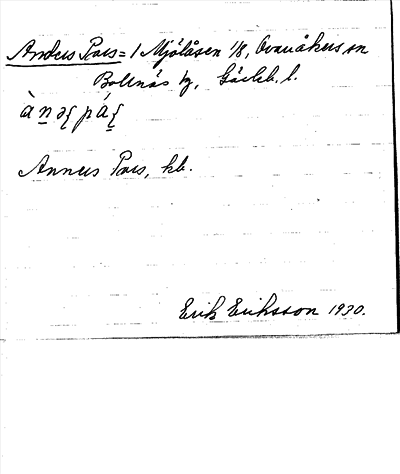 Anders Pars = 1 Mjölåsen 1/8, Ovanåkers sn
Bollnäs tg, Gävleb. l.
ànəʃ páʃ
Anners Pars, kb.
Erik Eriksson 1930.